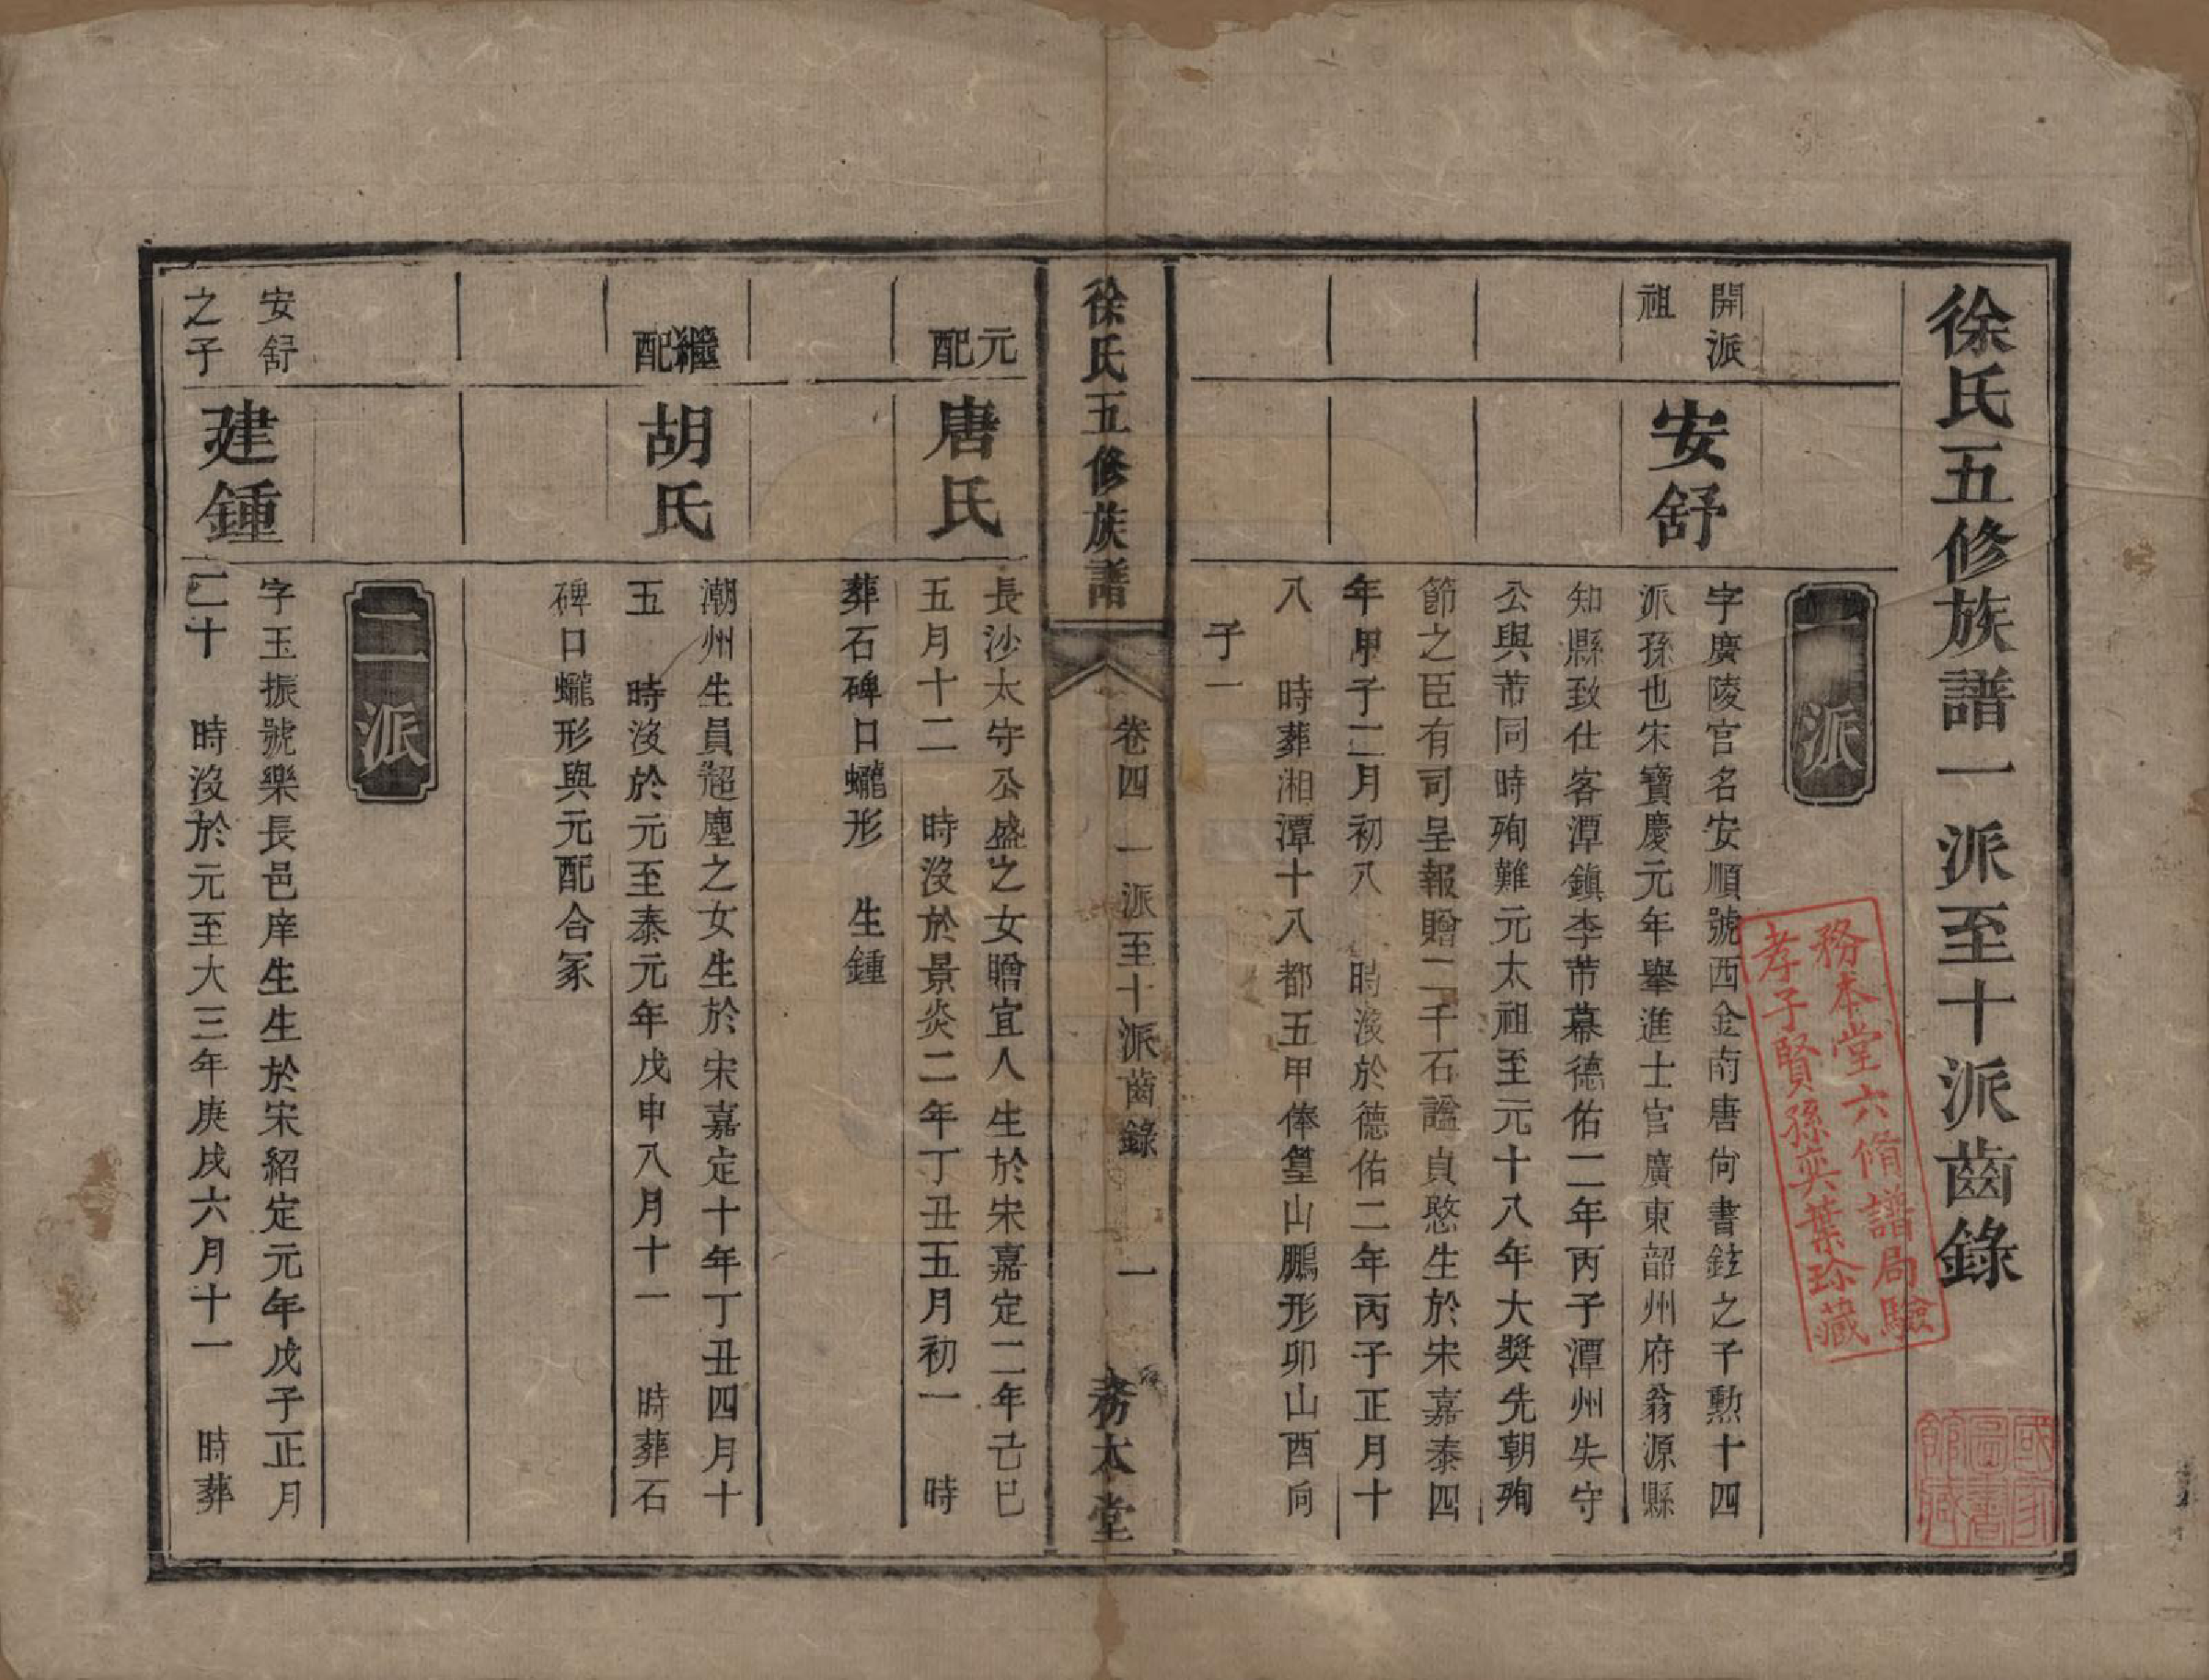 徐氏五修族譜一派至十派齒錄
務本堂六脩譜局驗
孝子賢孫奕葉珍藏
國家圖書館藏
一派
開派祖
安舒
字廣陵官名安順號西金南唐尙書鉉之子勲十四
派孫也宋寶慶元年舉進士官廣東韶州府翁源縣
知縣致仕客潭鎮李芾幕德佑二年丙子潭州失守
公與芾同時殉難元太祖至元十八年大獎先朝殉
節之臣有司呈報贈二千石諡貞愍生於宋嘉泰四
年甲子二月初八　時沒於德佑二年丙子正月十
八　時葬湘潭十八都五甲俸篁山鵬形卯山酉向
子一
徐氏五修族譜
卷四　一派至十派齒錄
一
務本堂
元配
唐氏
長沙太守公盛之女贈宜人生於宋嘉定二年己巳
五月十二　時沒於景炎二年丁丑五月初一　時
葬石碑口蠬形　生鍾
繼配
胡氏
潮州生員超塵之女生於宋嘉定十年丁丑四月十
五　時沒於元至泰元年戊申八月十一　時葬石
碑口蠬形與元配合冢
二派
安舒之子
建鍾
字玉振號樂長邑庠生生於宋紹定元年戊子正月
二十　時沒於元至大三年庚戌六月十一　時葬